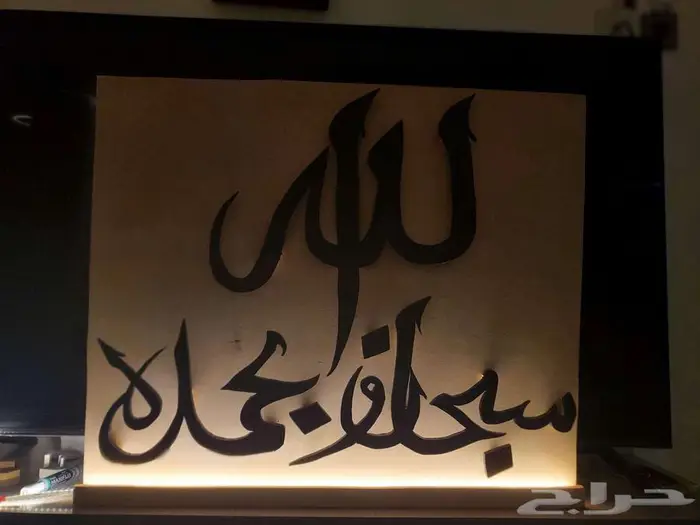 سبحان الله وبحمده
حراج